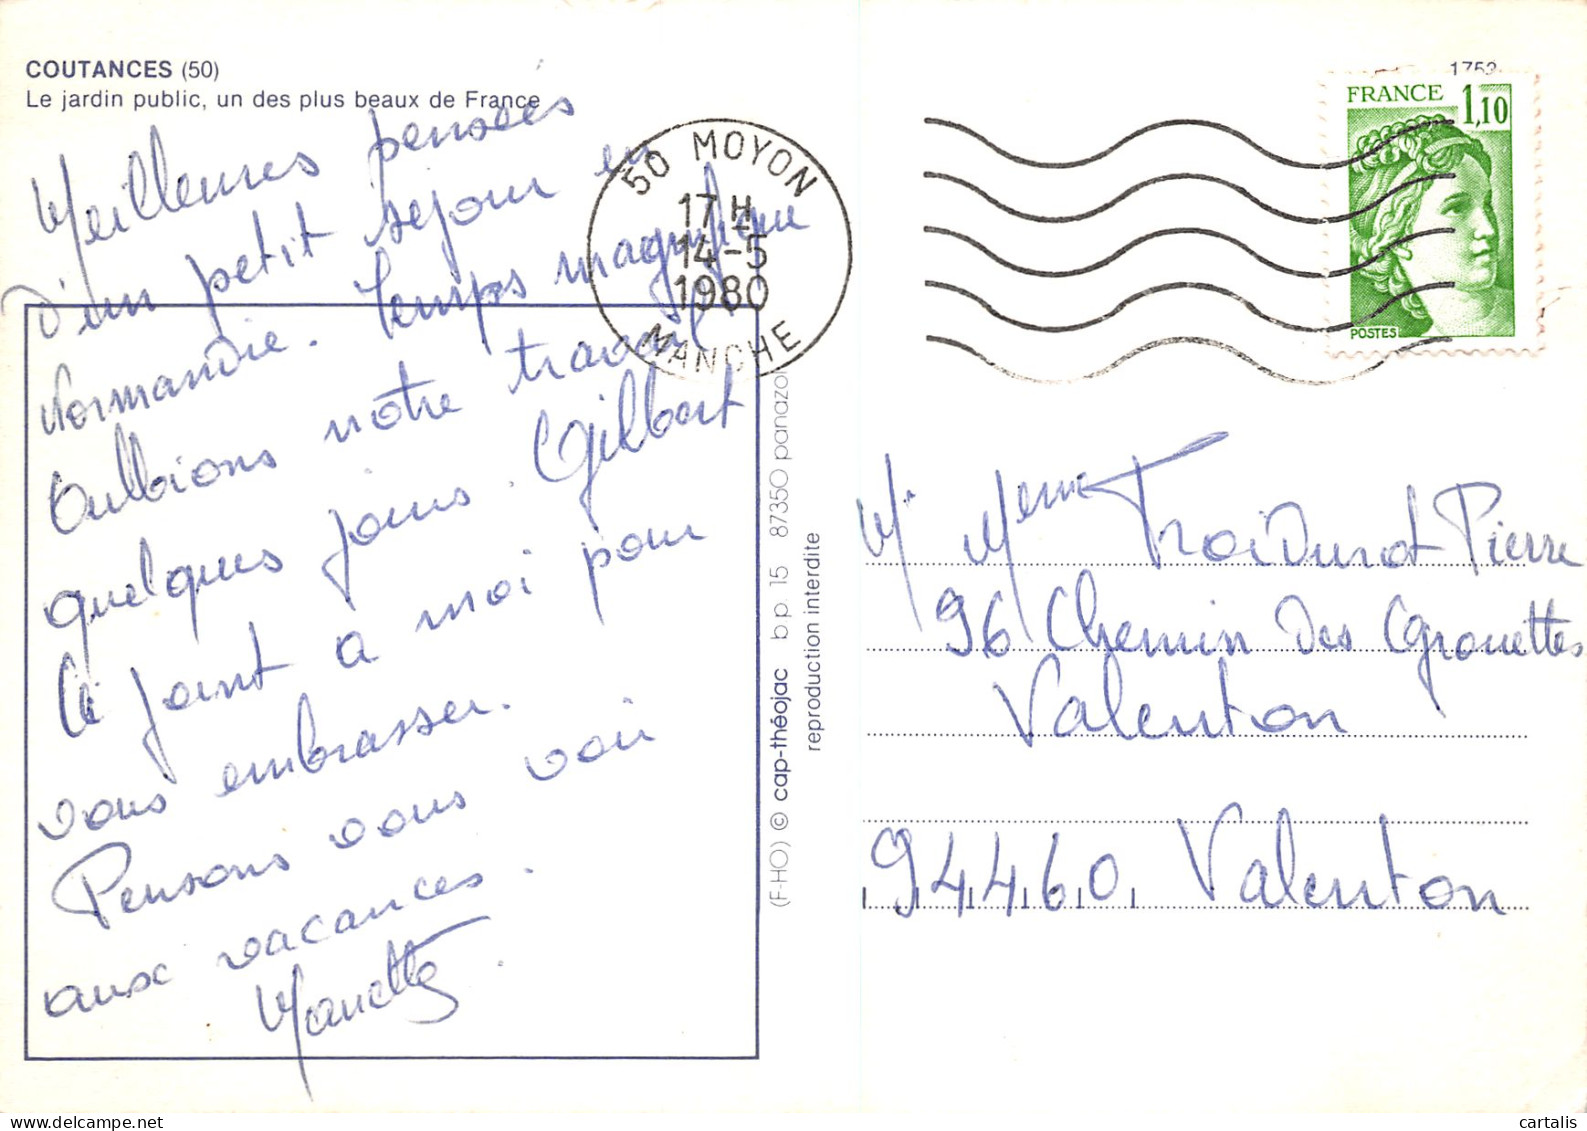 COUTANCES (50)
Le jardin public, un des plus beaux de France
Meilleures pensées
d'un petit séjour en
Normandie. Temps magnifique
oublions notre travail
quelques jours. Gilbert
se joint a moi pour
vous embrasser.
Pensons vous voir
aux vacances.
(F-HO) © cap-théojac b.p. 15 87350 panazol
reproduction interdite
50 MOYON
17 H
14-5
1980
MANCHE
1752
FRANCE 1,10
POSTES
Mr Meme Froidurot Pierre
96 Chemin des Grouettes
Valenton
94460 Valenton
cartalis